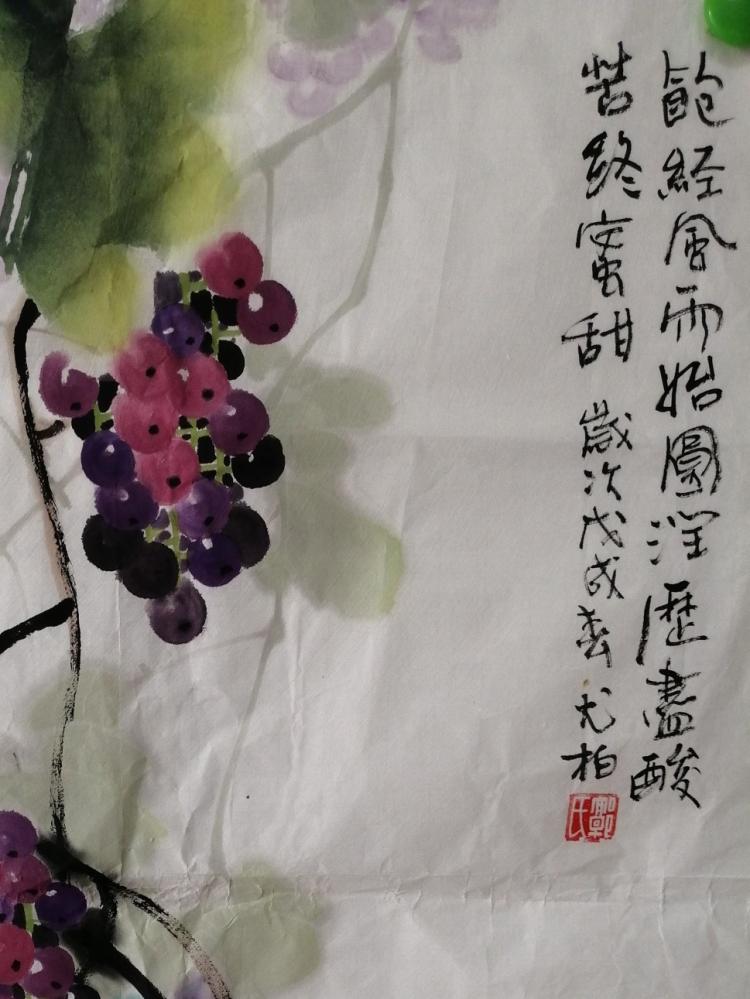 飽经風雨始圓潤歷盡酸
苦終蜜甜 歲次戊戌春 尤柏
鄭氏